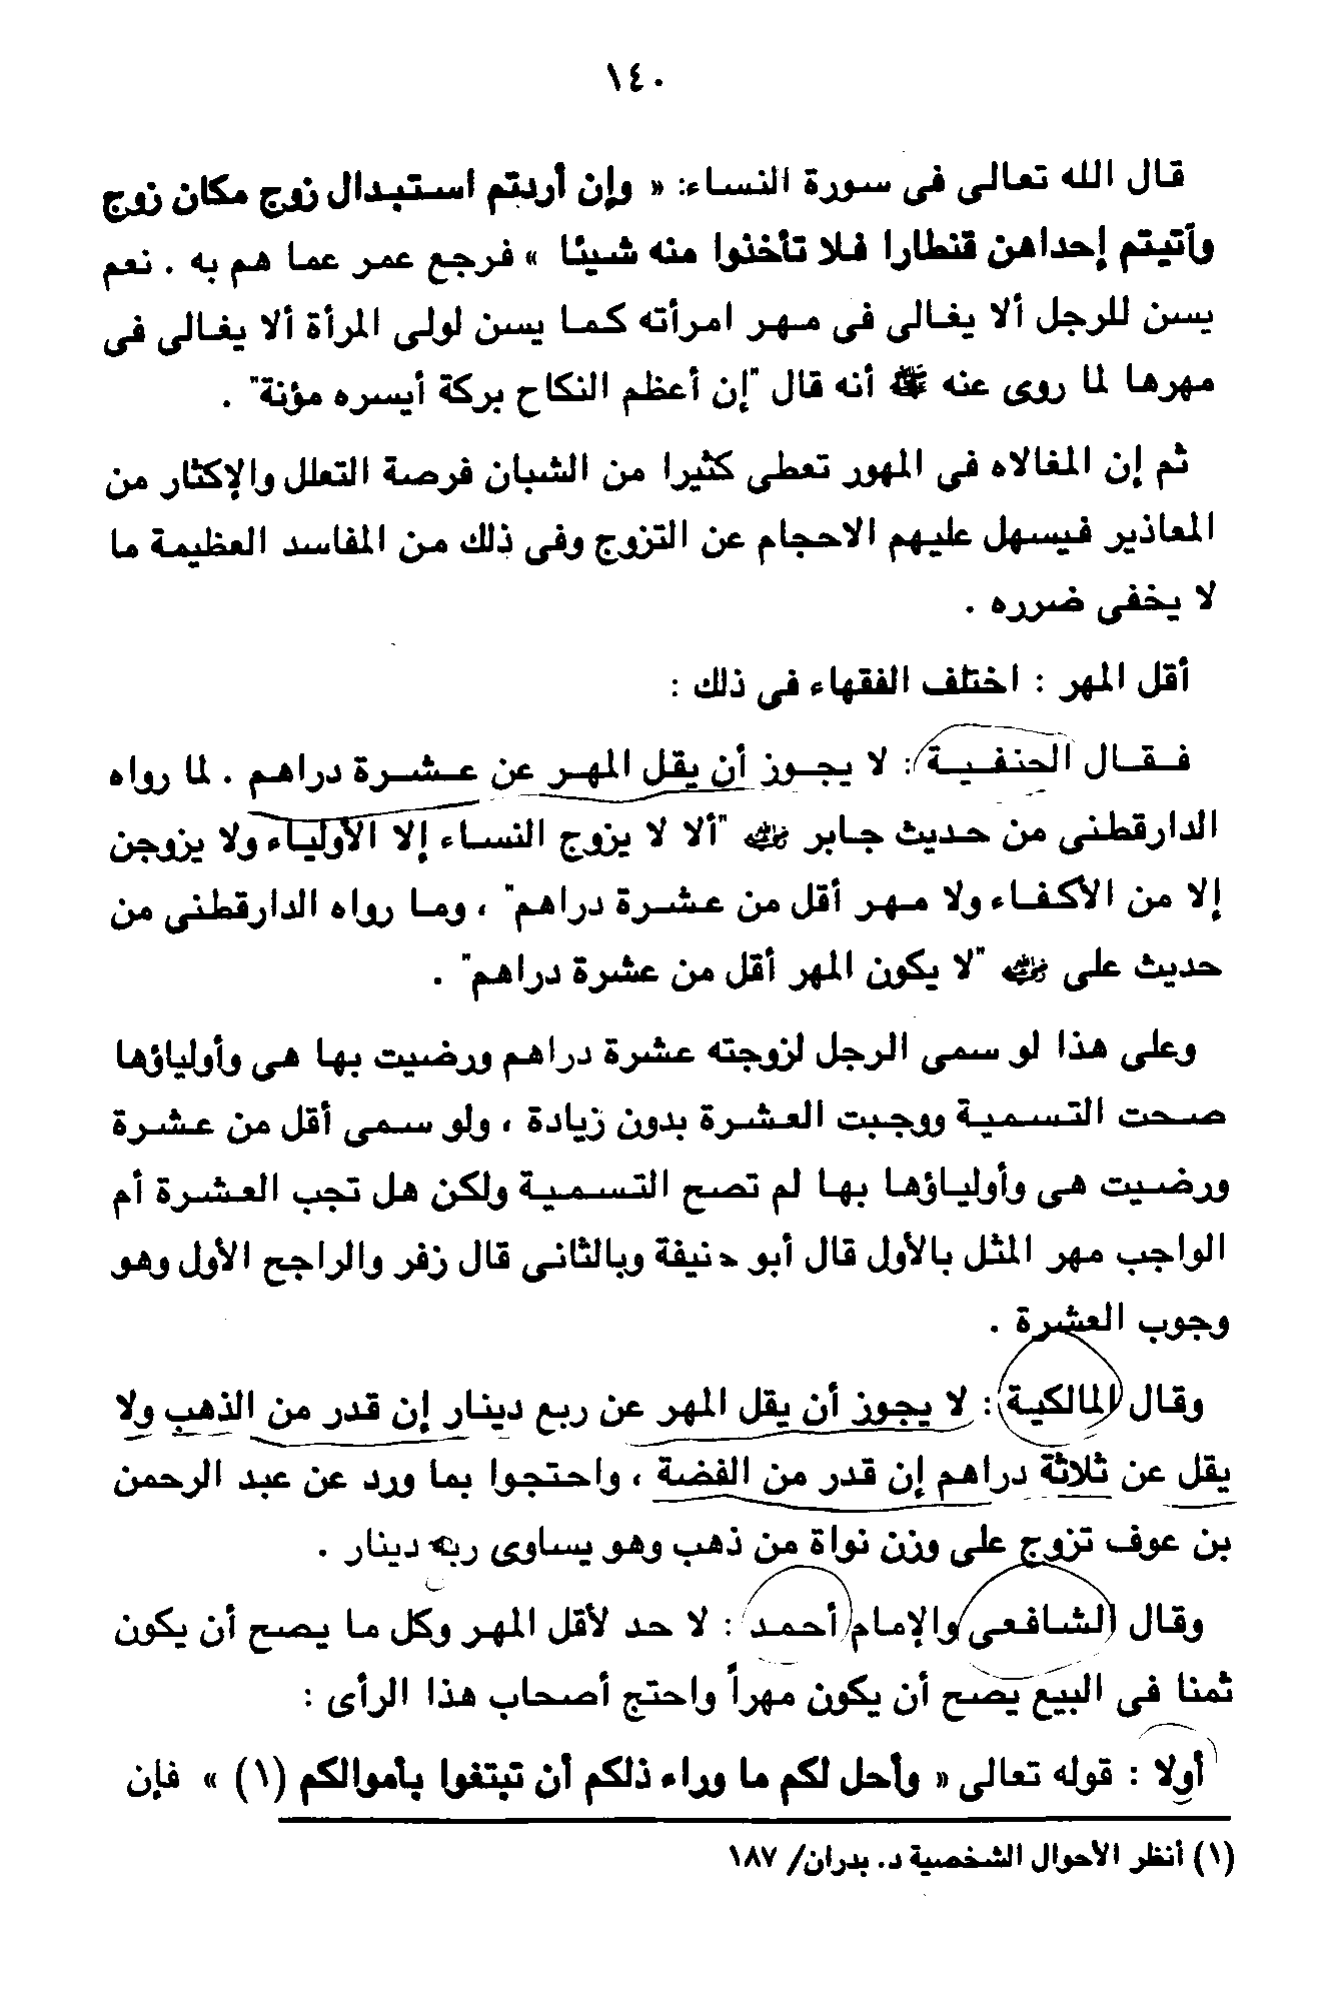 ١٤٠
قال الله تعالى فى سورة النساء: « وإن أردتم استبدال زوج مكان زوج
وآتيتم إحداهن قنطارا فلا تأخذوا منه شيئا » فرجع عمر عما هم به . نعم
يسن للرجل ألا يغالى فى مهر امرأته كما يسن لولى المرأة ألا يغالى فى
مهرها لما روى عنه ﷺ أنه قال "إن أعظم النكاح بركة أيسره مؤنة" .
ثم إن المغالاه فى المهور تعطى كثيرا من الشبان فرصة التعلل والإكثار من
المعاذير فيسهل عليهم الاحجام عن التزوج وفى ذلك من المفاسد العظيمة ما
لا يخفى ضرره .
أقل المهر : اختلف الفقهاء فى ذلك :
فقال الحنفية : لا يجوز أن يقل المهر عن عشرة دراهم . لما رواه
الدارقطنى من حديث جابر رضي الله عنه "ألا لا يزوج النساء إلا الأولياء ولا يزوجن
إلا من الأكفاء ولا مهر أقل من عشرة دراهم" ، وما رواه الدارقطنى من
حديث على رضي الله عنه "لا يكون المهر أقل من عشرة دراهم" .
وعلى هذا لو سمى الرجل لزوجته عشرة دراهم ورضيت بها هى وأولياؤها
صحت التسمية ووجبت العشرة بدون زيادة ، ولو سمى أقل من عشرة
ورضيت هى وأولياؤها بها لم تصح التسمية ولكن هل تجب العشرة أم
الواجب مهر المثل بالأول قال أبو حنيفة وبالثانى قال زفر والراجح الأول وهو
وجوب العشرة .
وقال المالكية : لا يجوز أن يقل المهر عن ربع دينار إن قدر من الذهب ولا
يقل عن ثلاثة دراهم إن قدر من الفضة ، واحتجوا بما ورد عن عبد الرحمن
بن عوف تزوج على وزن نواة من ذهب وهو يساوى ربع دينار .
وقال الشافعى والإمام أحمد : لا حد لأقل المهر وكل ما يصح أن يكون
ثمنا فى البيع يصح أن يكون مهراً واحتج أصحاب هذا الرأى :
أولا : قوله تعالى « وأحل لكم ما وراء ذلكم أن تبتغوا بأموالكم (١) » فإن
(١) أنظر الأحوال الشخصية د. بدران/ ١٨٧